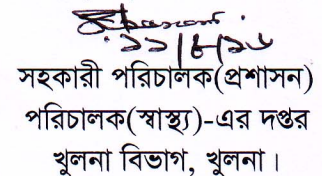 ১১/৪/১৬
সহকারী পরিচালক(প্রশাসন)
পরিচালক(স্বাস্থ্য)-এর দপ্তর
খুলনা বিভাগ, খুলনা।